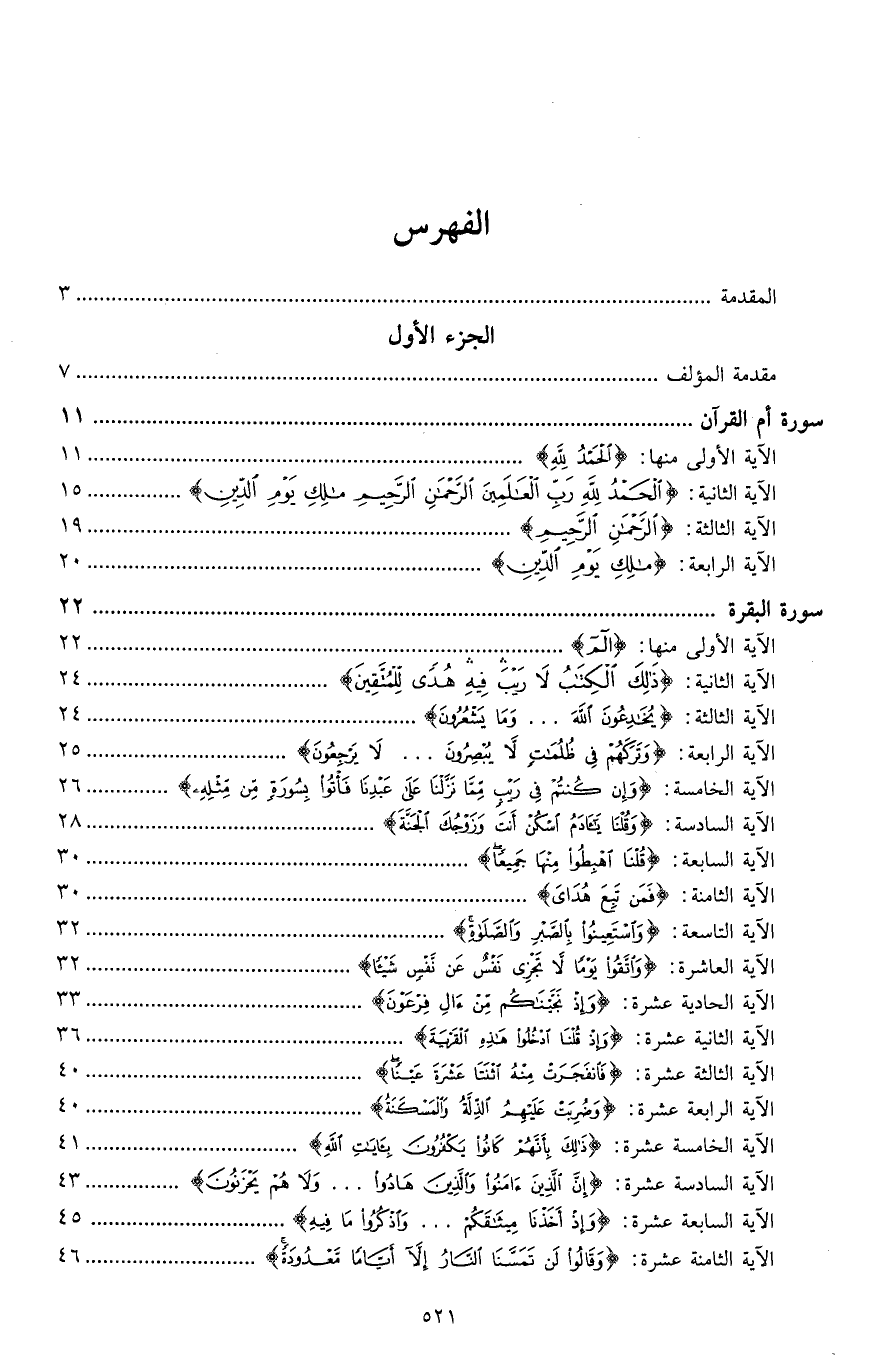 الفهرس
المقدمة ........................................ ٣
الجزء الأول
مقدمة المؤلف ........................................ ٧
سورة أم القرآن ........................................ ١١
الآية الأولى منها: ﴿ٱلْحَمْدُ لِلَّهِ﴾ ........................................ ١١
الآية الثانية: ﴿ٱلْحَمْدُ لِلَّهِ رَبِّ ٱلْعَٰلَمِينَ ٱلرَّحْمَٰنِ ٱلرَّحِيمِ مَٰلِكِ يَوْمِ ٱلدِّينِ﴾ ................ ١٥
الآية الثالثة: ﴿ٱلرَّحْمَٰنِ ٱلرَّحِيمِ﴾ ........................................ ١٩
الآية الرابعة: ﴿مَٰلِكِ يَوْمِ ٱلدِّينِ﴾ ........................................ ٢٠
سورة البقرة ........................................ ٢٢
الآية الأولى منها: ﴿الٓمٓ﴾ ........................................ ٢٢
الآية الثانية: ﴿ذَٰلِكَ ٱلْكِتَٰبُ لَا رَيْبَ ۛ فِيهِ ۛ هُدًى لِّلْمُتَّقِينَ﴾ ........................................ ٢٤
الآية الثالثة: ﴿يُخَٰدِعُونَ ٱللَّهَ ... وَمَا يَشْعُرُونَ﴾ ........................................ ٢٤
الآية الرابعة: ﴿وَتَرَكَهُمْ فِى ظُلُمَٰتٍ لَّا يُبْصِرُونَ ... لَا يَرْجِعُونَ﴾ ........................................ ٢٥
الآية الخامسة: ﴿وَإِن كُنتُمْ فِى رَيْبٍ مِّمَّا نَزَّلْنَا عَلَىٰ عَبْدِنَا فَأْتُوا۟ بِسُورَةٍ مِّن مِّثْلِهِۦ﴾ ............. ٢٦
الآية السادسة: ﴿وَقُلْنَا يَٰٓـَٔادَمُ ٱسْكُنْ أَنتَ وَزَوْجُكَ ٱلْجَنَّةَ﴾ ........................................ ٢٨
الآية السابعة: ﴿قُلْنَا ٱهْبِطُوا۟ مِنْهَا جَمِيعًا ۖ﴾ ........................................ ٣٠
الآية الثامنة: ﴿فَمَن تَبِعَ هُدَاىَ﴾ ........................................ ٣٠
الآية التاسعة: ﴿وَٱسْتَعِينُوا۟ بِٱلصَّبْرِ وَٱلصَّلَوٰةِ ۚ﴾ ........................................ ٣٢
الآية العاشرة: ﴿وَٱتَّقُوا۟ يَوْمًا لَّا تَجْزِى نَفْسٌ عَن نَّفْسٍ شَيْـًٔا﴾ ........................................ ٣٢
الآية الحادية عشرة: ﴿وَإِذْ نَجَّيْنَٰكُم مِّنْ ءَالِ فِرْعَوْنَ﴾ ........................................ ٣٣
الآية الثانية عشرة: ﴿وَإِذْ قُلْنَا ٱدْخُلُوا۟ هَٰذِهِ ٱلْقَرْيَةَ﴾ ........................................ ٣٦
الآية الثالثة عشرة: ﴿فَٱنفَجَرَتْ مِنْهُ ٱثْنَتَا عَشْرَةَ عَيْنًا ۖ﴾ ........................................ ٤٠
الآية الرابعة عشرة: ﴿وَضُرِبَتْ عَلَيْهِمُ ٱلذِّلَّةُ وَٱلْمَسْكَنَةُ﴾ ........................................ ٤٠
الآية الخامسة عشرة: ﴿ذَٰلِكَ بِأَنَّهُمْ كَانُوا۟ يَكْفُرُونَ بِـَٔايَٰتِ ٱللَّهِ﴾ ................................ ٤١
الآية السادسة عشرة: ﴿إِنَّ ٱلَّذِينَ ءَامَنُوا۟ وَٱلَّذِينَ هَادُوا۟ ... وَلَا هُمْ يَحْزَنُونَ﴾ ................ ٤٣
الآية السابعة عشرة: ﴿وَإِذْ أَخَذْنَا مِيثَٰقَكُمْ ... وَٱذْكُرُوا۟ مَا فِيهِ﴾ ................................ ٤٥
الآية الثامنة عشرة: ﴿وَقَالُوا۟ لَن تَمَسَّنَا ٱلنَّارُ إِلَّآ أَيَّامًا مَّعْدُودَةً ۚ﴾ ............................ ٤٦
٥٢١